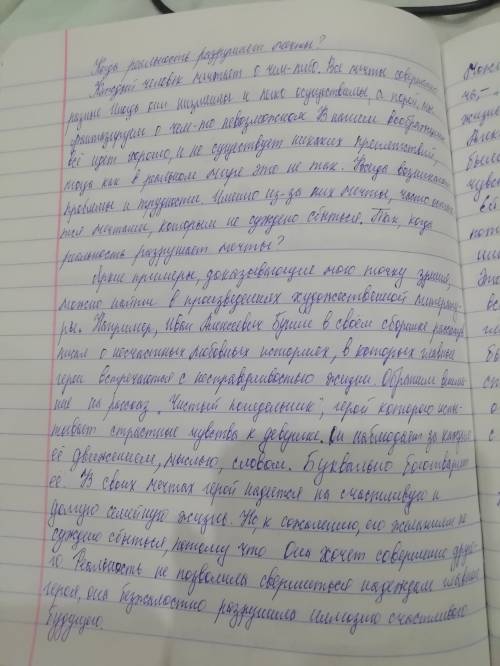 Когда реальность разрушает мечты?
Каждый человек мечтает о чем-либо. Все мечты совершенно
разные. Иногда они низменны и легко осуществимы, а порой, мы
фантазируем о чем-то невозможном. В нашем воображении
всё идет хорошо, и не существует никаких препятствий,
тогда как в реальном мире это не так. Всегда возникают
проблемы и трудности. Именно из-за них мечты, часто остаю-
тся мечтами, которым не суждено сбыться. Так, когда
реальность разрушает мечты?
Яркие примеры, доказывающие мою точку зрения,
можно найти в произведениях художественной литерату-
ры. Например, Иван Алексеевич Бунин в своём сборнике рассказов
писал о несчастных любовных историях, в которых главные
герои встречаются с несправедливостью жизни. Обратим внима-
ние на рассказ "Чистый понедельник", герой которого испы-
тывает страстные чувства к девушке. Он наблюдает за каждым
её движением, мыслью, словом. Буквально боготворит
её. В своих мечтах герой надеется на счастливую и
долгую семейную жизнь. Но, к сожалению, его желаниям не
суждено сбыться, потому что Она хочет совершенно друго-
го. Реальность не позволила свершиться надеждам главного
героя, она безжалостно разрушила иллюзию счастливого
будущего.